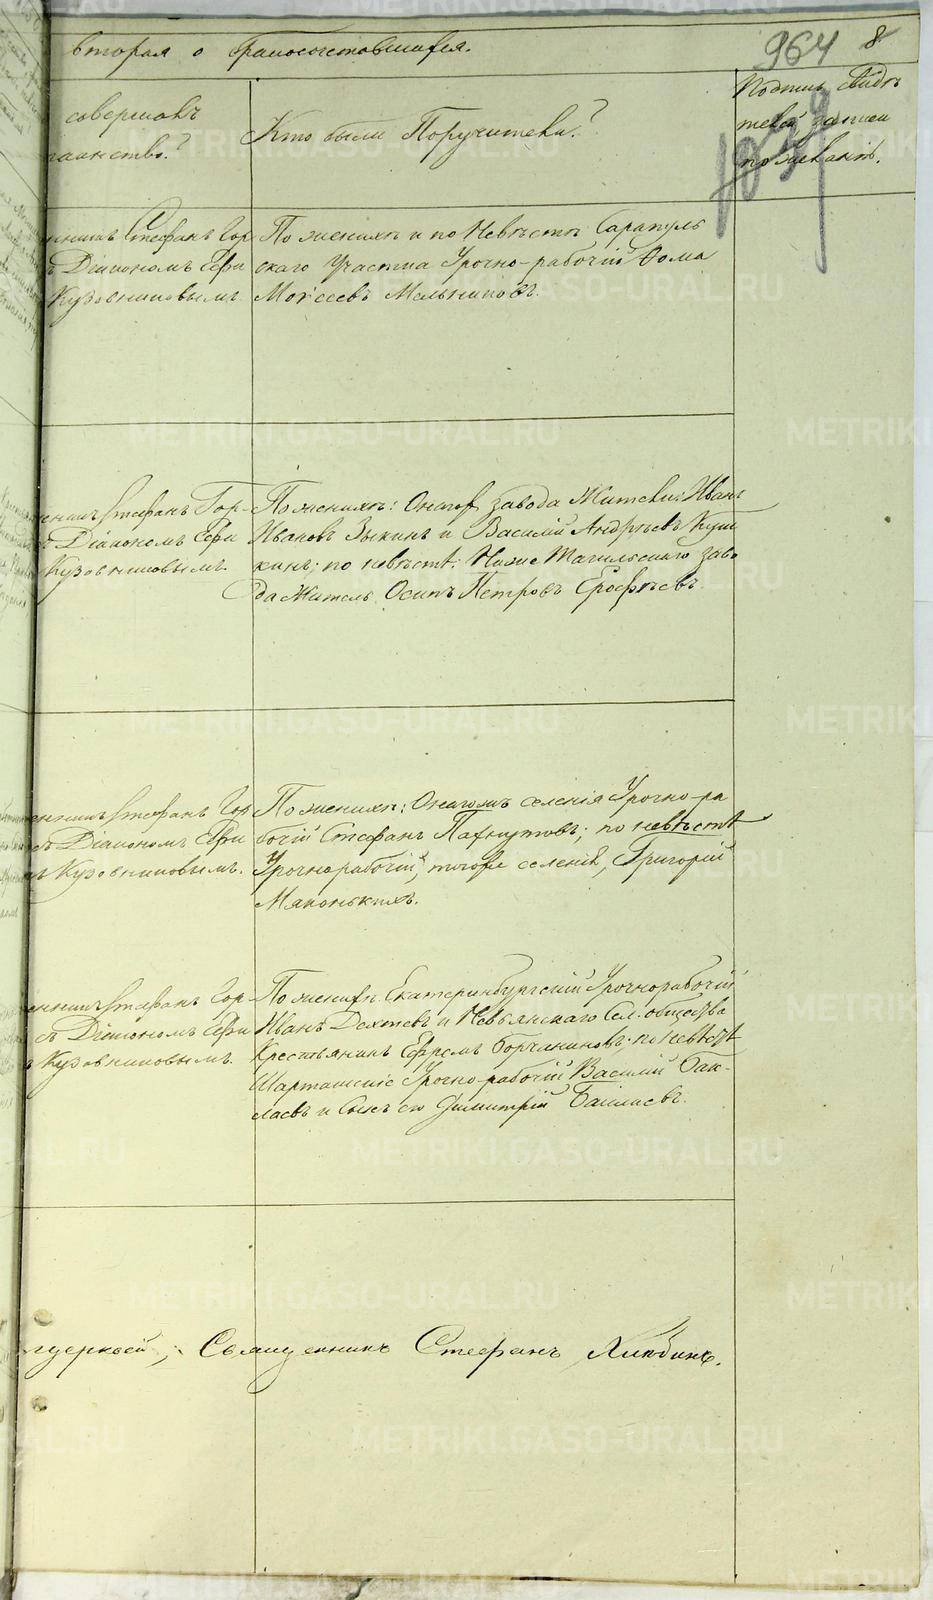 вторая о бракосочетавшихся.
964 8
совершалъ
таинство?
Кто были Поручители?
Подпись свидѣ
телей записи
по желанію.
Стефанъ Гор
Діакономъ Ефи
Кузовниковымъ.
По женихѣ и по Невѣстѣ Сарапуль
скаго Участка Урочно-рабочій Ѳома
Моѵсеевъ Мельниковъ.
Стефанъ Гор-
Діакономъ Ефи
Кузовниковымъ.
По женихѣ: завода Жители: Иванъ
Ивановъ Зыкинъ и Василій Андреевъ
кинъ; по невѣстѣ: Нижне Тагильскаго заво
да Житель Осипъ Петровъ Ерофѣевъ.
Стефанъ Гор
Діакономъ Ефи
Кузовниковымъ.
По женихѣ: селенія Урочно-ра
бочій Стефанъ Пафнутовъ; по невѣстѣ
Урочнорабочій, тогоже селенія, Григорій
Маконькихъ.
Стефанъ Гор-
Діакономъ Ефи
Кузовниковымъ.
По женихѣ Екатеринбургскій Урочнорабочій
Иванъ и Невьянскаго Сел. общества
Крестьянинъ Ефремъ Борчаниновъ; по невѣстѣ
Шарташскіе Урочно-рабочій Василій Бак-
лаевъ и Сынъ его Димитрій Баклаевъ.
Священникъ Стефанъ Хлюбинъ.
METRIKI.GASO-URAL.RU